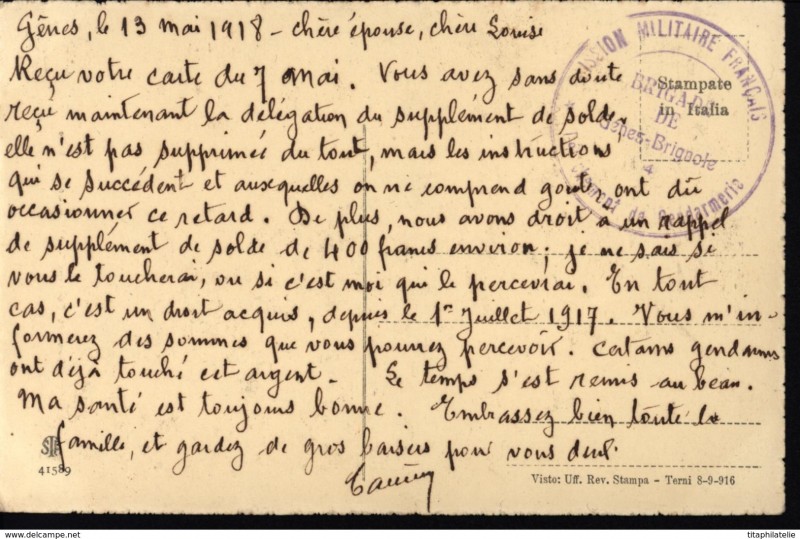 Gênes, le 13 mai 1918 - chère épouse, chère Louise
Reçu votre carte du 7 mai. Vous avez sans doute
reçu maintenant la délégation du supplément de solde,
elle n'est pas supprimée du tout, mais les instructions
qui se succèdent et auxquelles on ne comprend goutte ont dû
occasionner ce retard. De plus, nous avons droit à un rappel
de supplément de solde de 400 francs environ ; je ne sais si
vous le toucherai, ou si c'est moi qui le percevrai. En tout
cas, c'est un droit acquis, depuis le 1er Juillet 1917. Vous m'in-
formerez des sommes que vous pourrez percevoir. Certains gendarmes
ont déjà touché cet argent. Le temps s'est remis au beau.
Ma santé est toujours bonne. Embrassez bien toute la
famille, et gardez de gros baisers pour vous
MISSION MILITAIRE FRANÇAIS
BRIGADE
DE
Gênes-Brignole
de Gendarmerie
Stampate
in Italia
41589
Visto: Uff. Rev. Stampa - Terni 8-9-916
www.delcampe.net
titaphilatelie